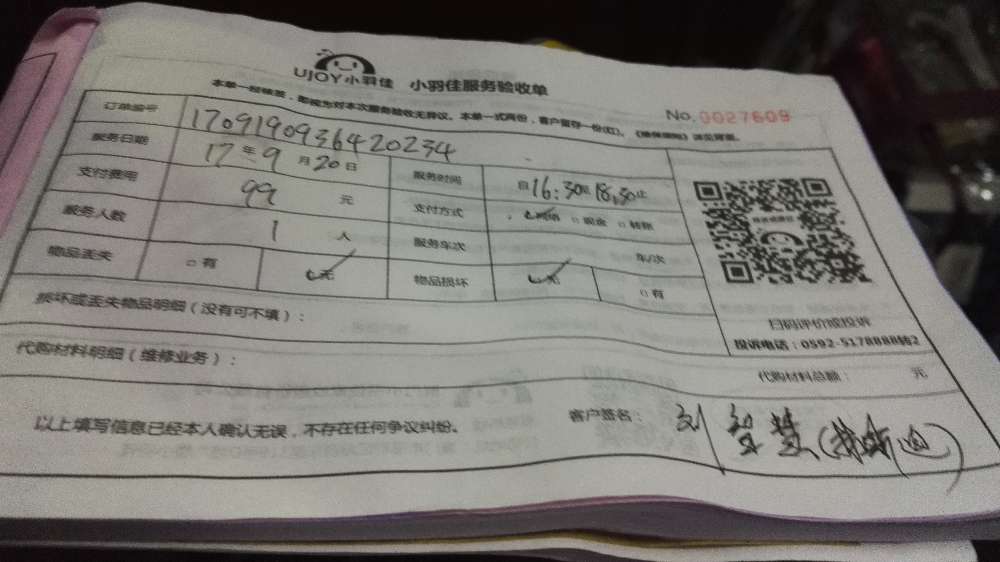 UJOY小羽佳 小羽佳服务验收单
No.0027609
本单一经填签,即视为对本次服务验收无异议。本单一式两份,客户留存一份(红)。
订单编号 170919093642 0234
服务日期 17年9月20日 服务时间 自16:30至18:30止
支付费用 99 元 支付方式 网络 □现金 □转账
服务人数 1 人 服务车次 车/次
物品丢失 □有 ✓无 物品损坏 ✓无 □有
损坏或丢失物品明细(没有可不填):
扫码评价或投诉
投诉电话:0592-5178888转2
代购材料明细(维修业务):
代购材料总额: 元
以上填写信息已经本人确认无误,不存在任何争议纠纷。 客户签名: 刘智慧